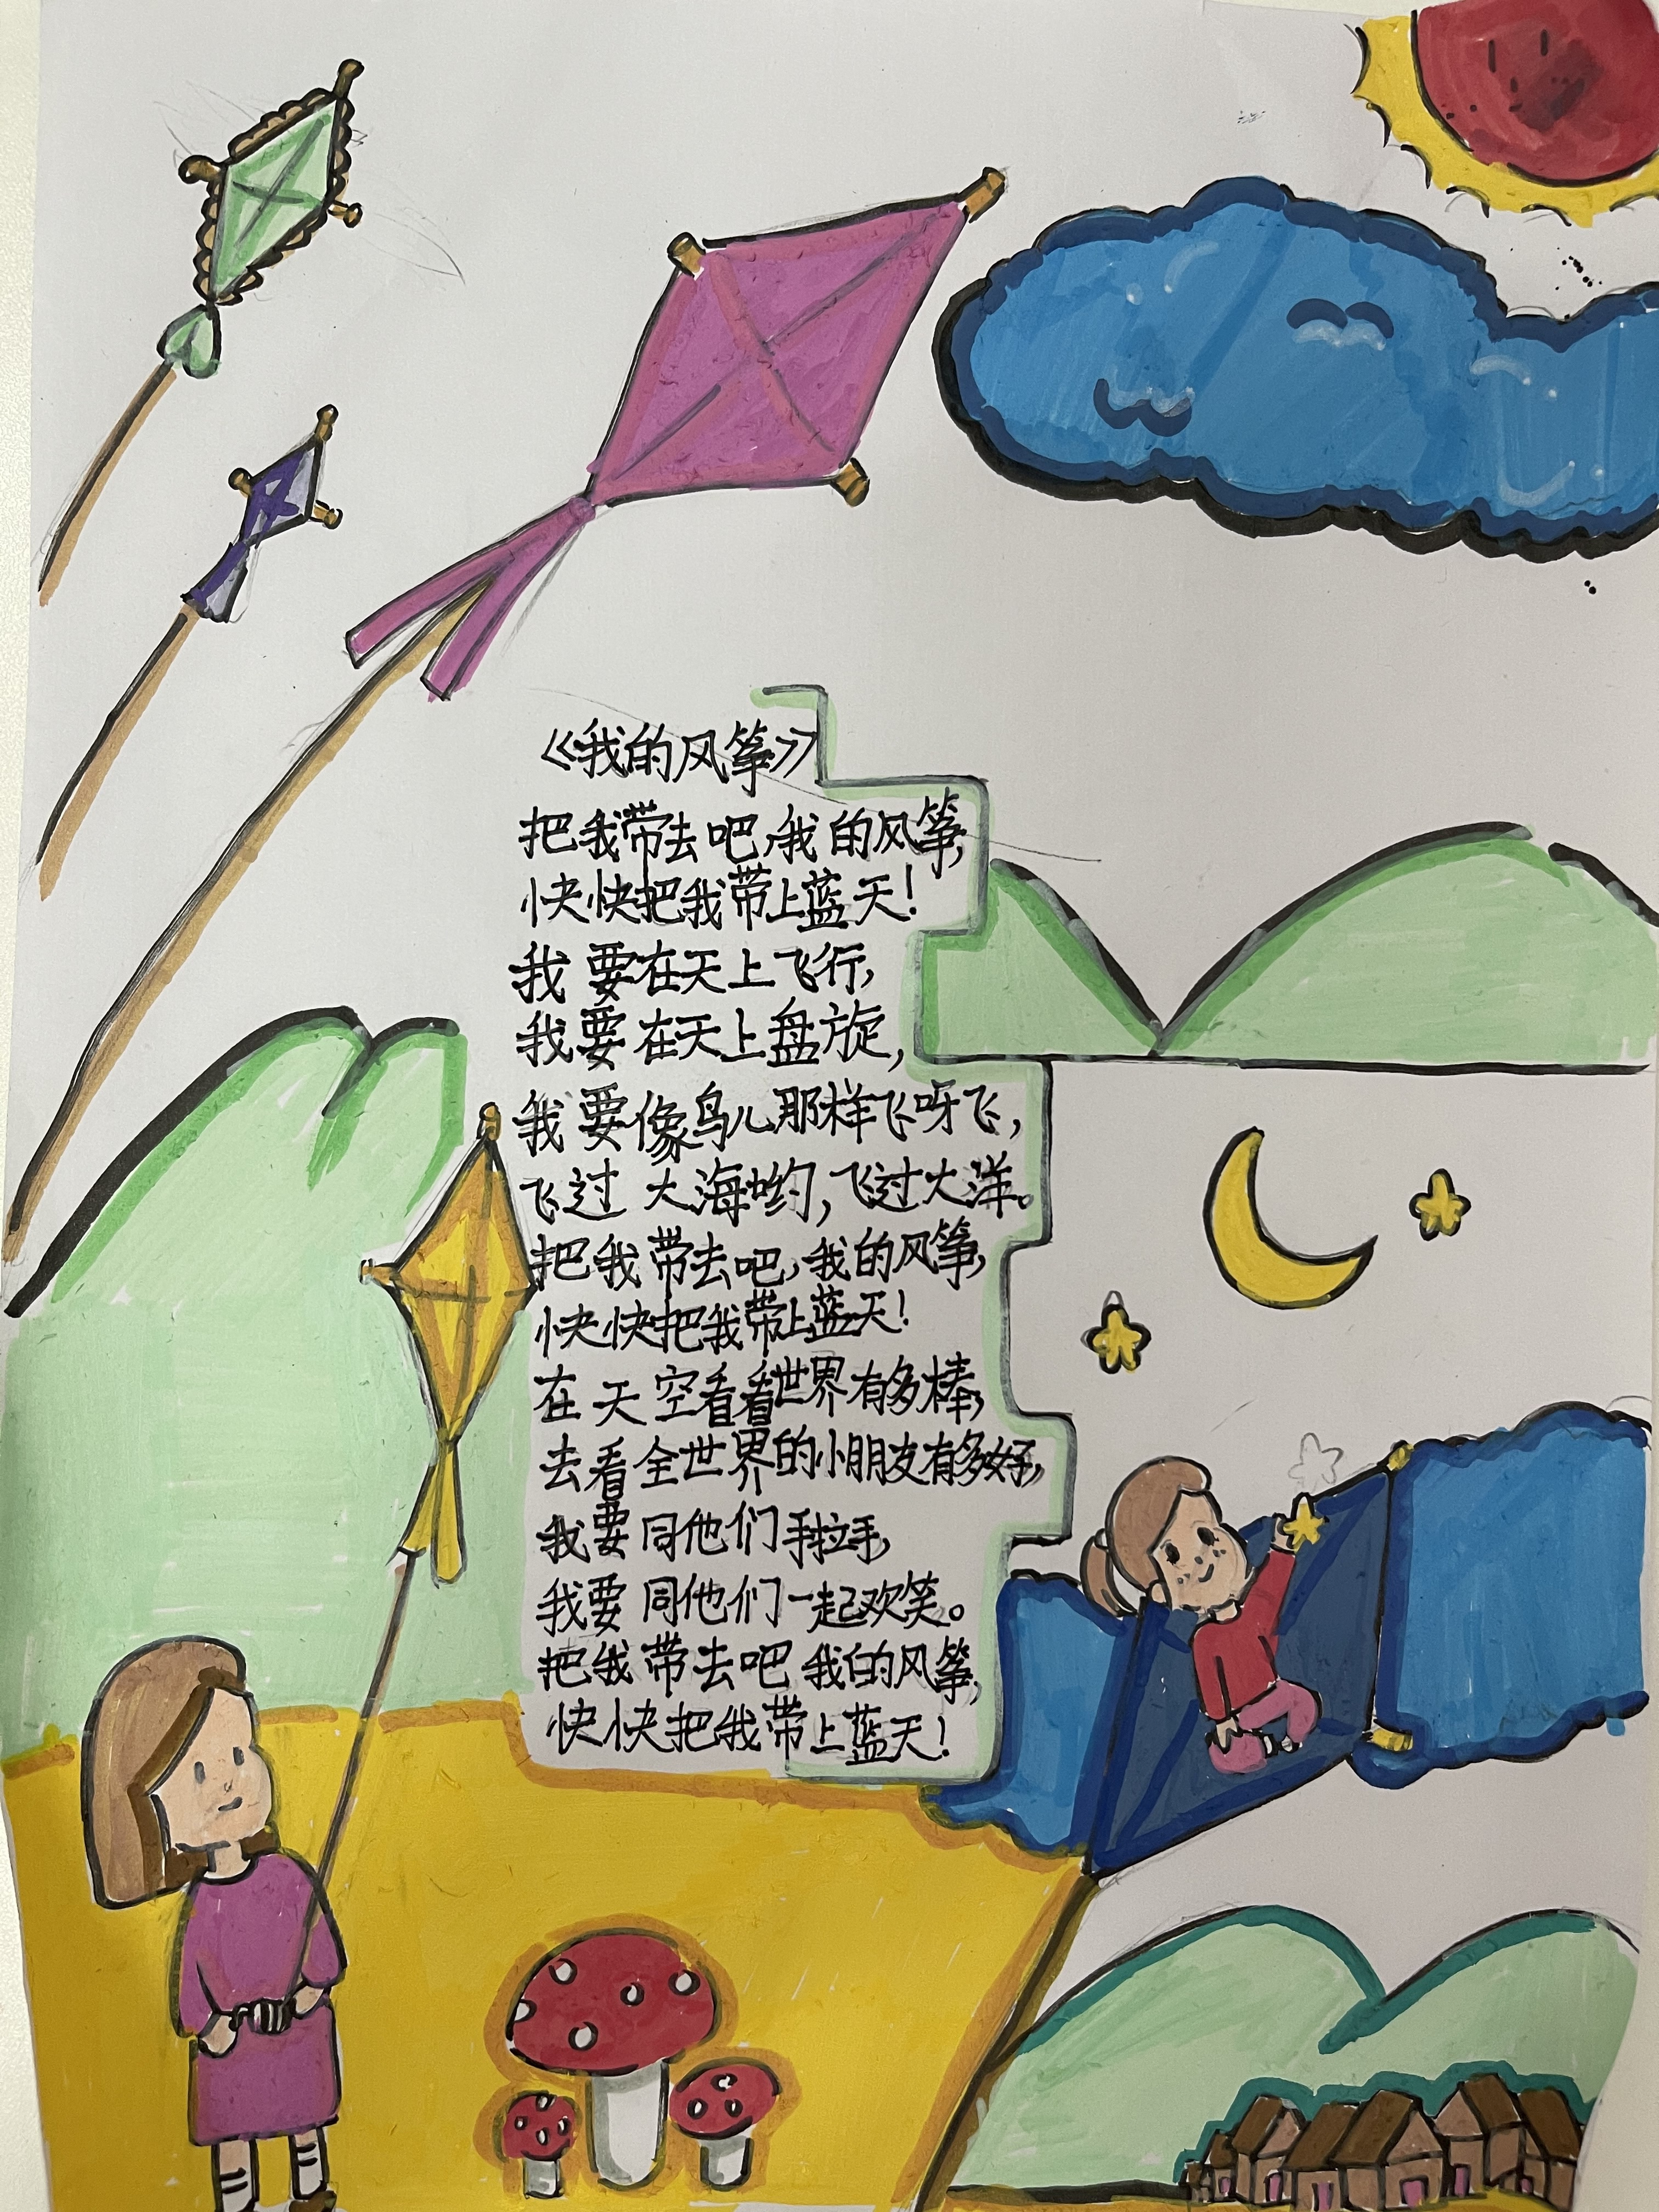 《我的风筝》
把我带去吧,我的风筝,
快快把我带上蓝天!
我要在天上飞行,
我要在天上盘旋,
我要像鸟儿那样飞呀飞,
飞过大海哟,飞过大洋。
把我带去吧,我的风筝,
快快把我带上蓝天!
在天空看看世界有多棒,
去看全世界的小朋友有多好,
我要同他们手拉手,
我要同他们一起欢笑。
把我带去吧 我的风筝,
快快把我带上蓝天!